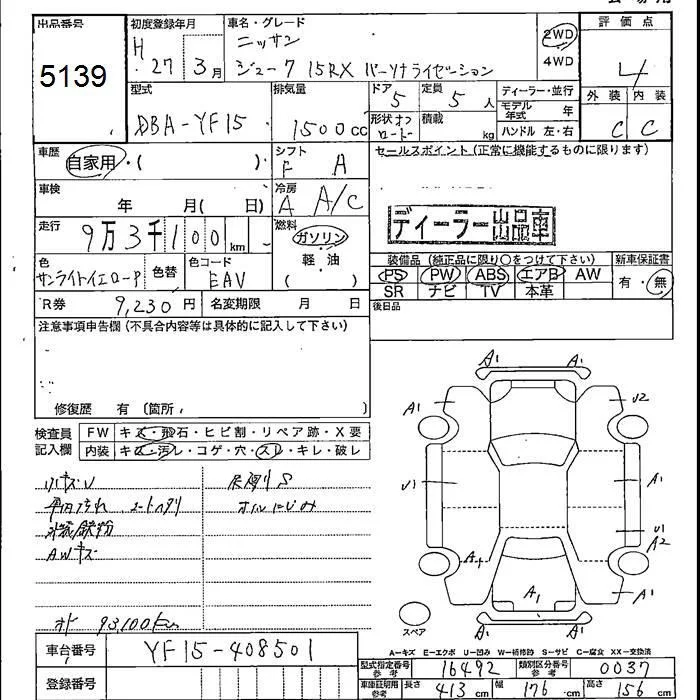 出品番号
5139
初度登録年月
H 27年 3月
車名・グレード
ニッサン
ジューク 15RX パーソナライゼーション
2WD
4WD
評価点
4
外装 内装
C C
型式
DBA-YF15
排気量
1500cc
ドア 5
定員 5人
形状
積載 kg
ディーラー・並行
モデル年式 年
ハンドル 左・右
車歴
自家用・( )
シフト
F A
セールスポイント(正常に機能するものに限ります)
車検
年 月( 日)
冷房
A A/C
ディーラー出品車
走行
9万3千100km
燃料
ガソリン
軽・油
( )
色
サンライトイエローP
色替
色コード
EAV
装備品(純正品に限り○をつけて下さい)
PS PW ABS エアB AW
SR ナビ TV 本革
新車保証書
有・無
R券 9,230円
名変期限 月 日
後日品
注意事項申告欄(不具合内容等は具体的に記入して下さい)
修復歴 有 (箇所, )
検査員記入欄
FW キズ・飛石・ヒビ割・リペア跡・X要
内装 キズ・汚れ・コゲ・穴・スレ・キレ・破レ
小キズU
AWキズ
オイルにじみ
93,100km
車台番号
YF15-408501
登録番号
A1 A1
A1 U2
U1 A1
U1
A2
A1
U1
A1 A1
スペア
A−キズ E−エクボ U−凹み W−補修跡 S−サビ C−腐食 XX−交換済
型式指定番号 参考
16492
類別区分番号 参考
0037
車庫証明用 参考
長さ 413cm
幅 176cm
高さ 156cm